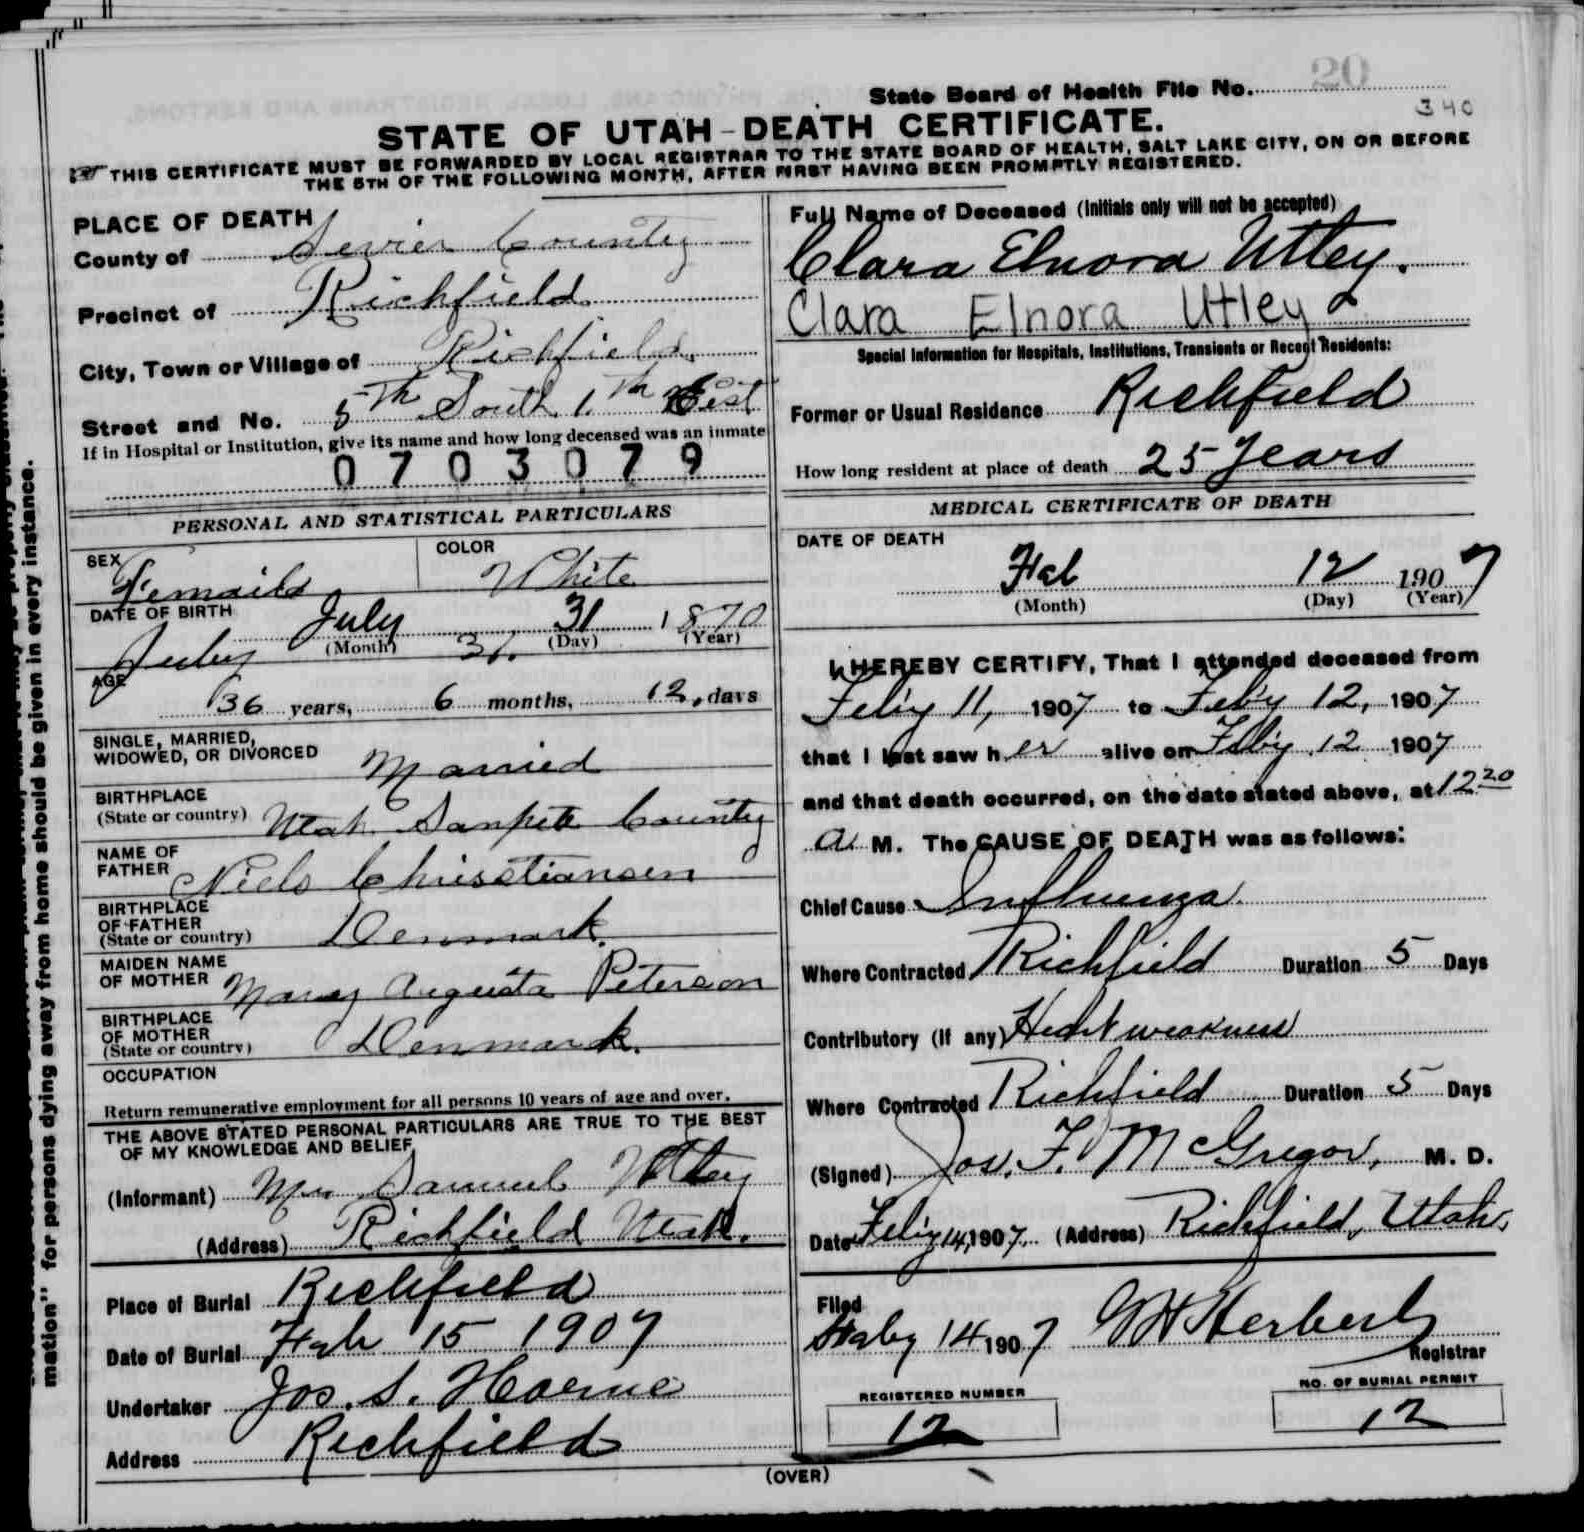 20
State Board of Health File No.
340
STATE OF UTAH-DEATH CERTIFICATE.
THIS CERTIFICATE MUST BE FORWARDED BY LOCAL REGISTRAR TO THE STATE BOARD OF HEALTH, SALT LAKE CITY, ON OR BEFORE
THE 5TH OF THE FOLLOWING MONTH, AFTER FIRST HAVING BEEN PROMPTLY REGISTERED.
PLACE OF DEATH
County of Sevier County
Precinct of Richfield
City, Town or Village of Richfield.
Street and No. 5th South 1th East
If in Hospital or Institution, give its name and how long deceased was an inmate
0703079
PERSONAL AND STATISTICAL PARTICULARS
SEX Female
COLOR White
DATE OF BIRTH July 31 1870
(Month) (Day) (Year)
July 31.
AGE
36 years, 6 months, 12, days
SINGLE, MARRIED,
WIDOWED, OR DIVORCED Married
BIRTHPLACE
(State or country) Utah Sanpete County
NAME OF
FATHER Niels Chrisstiansen
BIRTHPLACE
OF FATHER
(State or country) Denmark.
MAIDEN NAME
OF MOTHER Mary Augusta Peterson
BIRTHPLACE
OF MOTHER
(State or country) Denmark.
OCCUPATION
Return remunerative employment for all persons 10 years of age and over.
THE ABOVE STATED PERSONAL PARTICULARS ARE TRUE TO THE BEST
OF MY KNOWLEDGE AND BELIEF
(Informant) Samuel Utley
(Address) Richfield Utah.
Place of Burial Richfield
Date of Burial Feb 15 1907
Undertaker Jos. S. Horne
Address Richfield
Full Name of Deceased (Initials only will not be accepted)
Clara Elnora Utley.
Clara Elnora Utley
Special Information for Hospitals, Institutions, Transients or Recent Residents:
Former or Usual Residence Richfield
How long resident at place of death 25 Years
MEDICAL CERTIFICATE OF DEATH
DATE OF DEATH
Feb 12 1907
(Month) (Day) (Year)
I HEREBY CERTIFY, That I attended deceased from
Feb'y 11, 1907 to Feb'y 12, 1907
that I last saw her alive on Feb'y 12 1907
and that death occurred, on the date stated above, at 12 20
a M. The CAUSE OF DEATH was as follows:
Chief Cause Influenza.
Where Contracted Richfield Duration 5 Days
Contributory (if any) Heart weakness
Where Contracted Richfield Duration 5 Days
(Signed) Jos. F. McGregor, M. D.
Date Feb'y 14, 1907. (Address) Richfield, Utah,
Filed
Feby 14 1907 Herbert
Registrar
REGISTERED NUMBER
12
NO. OF BURIAL PERMIT
12
(OVER)
mation" for persons dying away from home should be given in every instance.